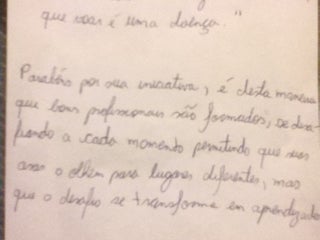 que voar é uma doença."
Parabéns por sua iniciativa, é desta maneira
que bons profissionais são formados, se desa-
fiando a cada momento permitindo que suas
asas o olhem para lugares diferentes, mas
que o desafio se transforme em aprendizado